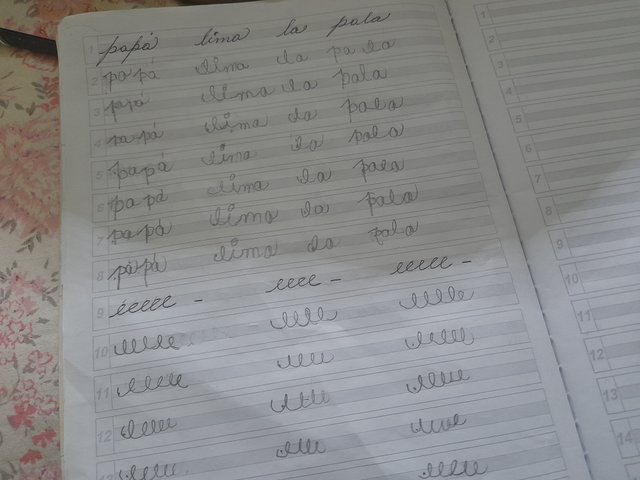 1 papá lima la pala
2 papá lima la pala
3 papá lima la pala
4 papá lima la pala
5 papá lima la pala
6 papá lima la pala
7 papá lima la pala
8 papá lima la pala
9 eeeee - eeee - eeeee -
10 eeeee eeeee eeeee
11 eeeee eeee eeeee
12 eeeee eeeee eeeee
13 eeeee eeee eeee
eeeee
1
2
3
4
5
6
7
8
9
10
11
12
13
14